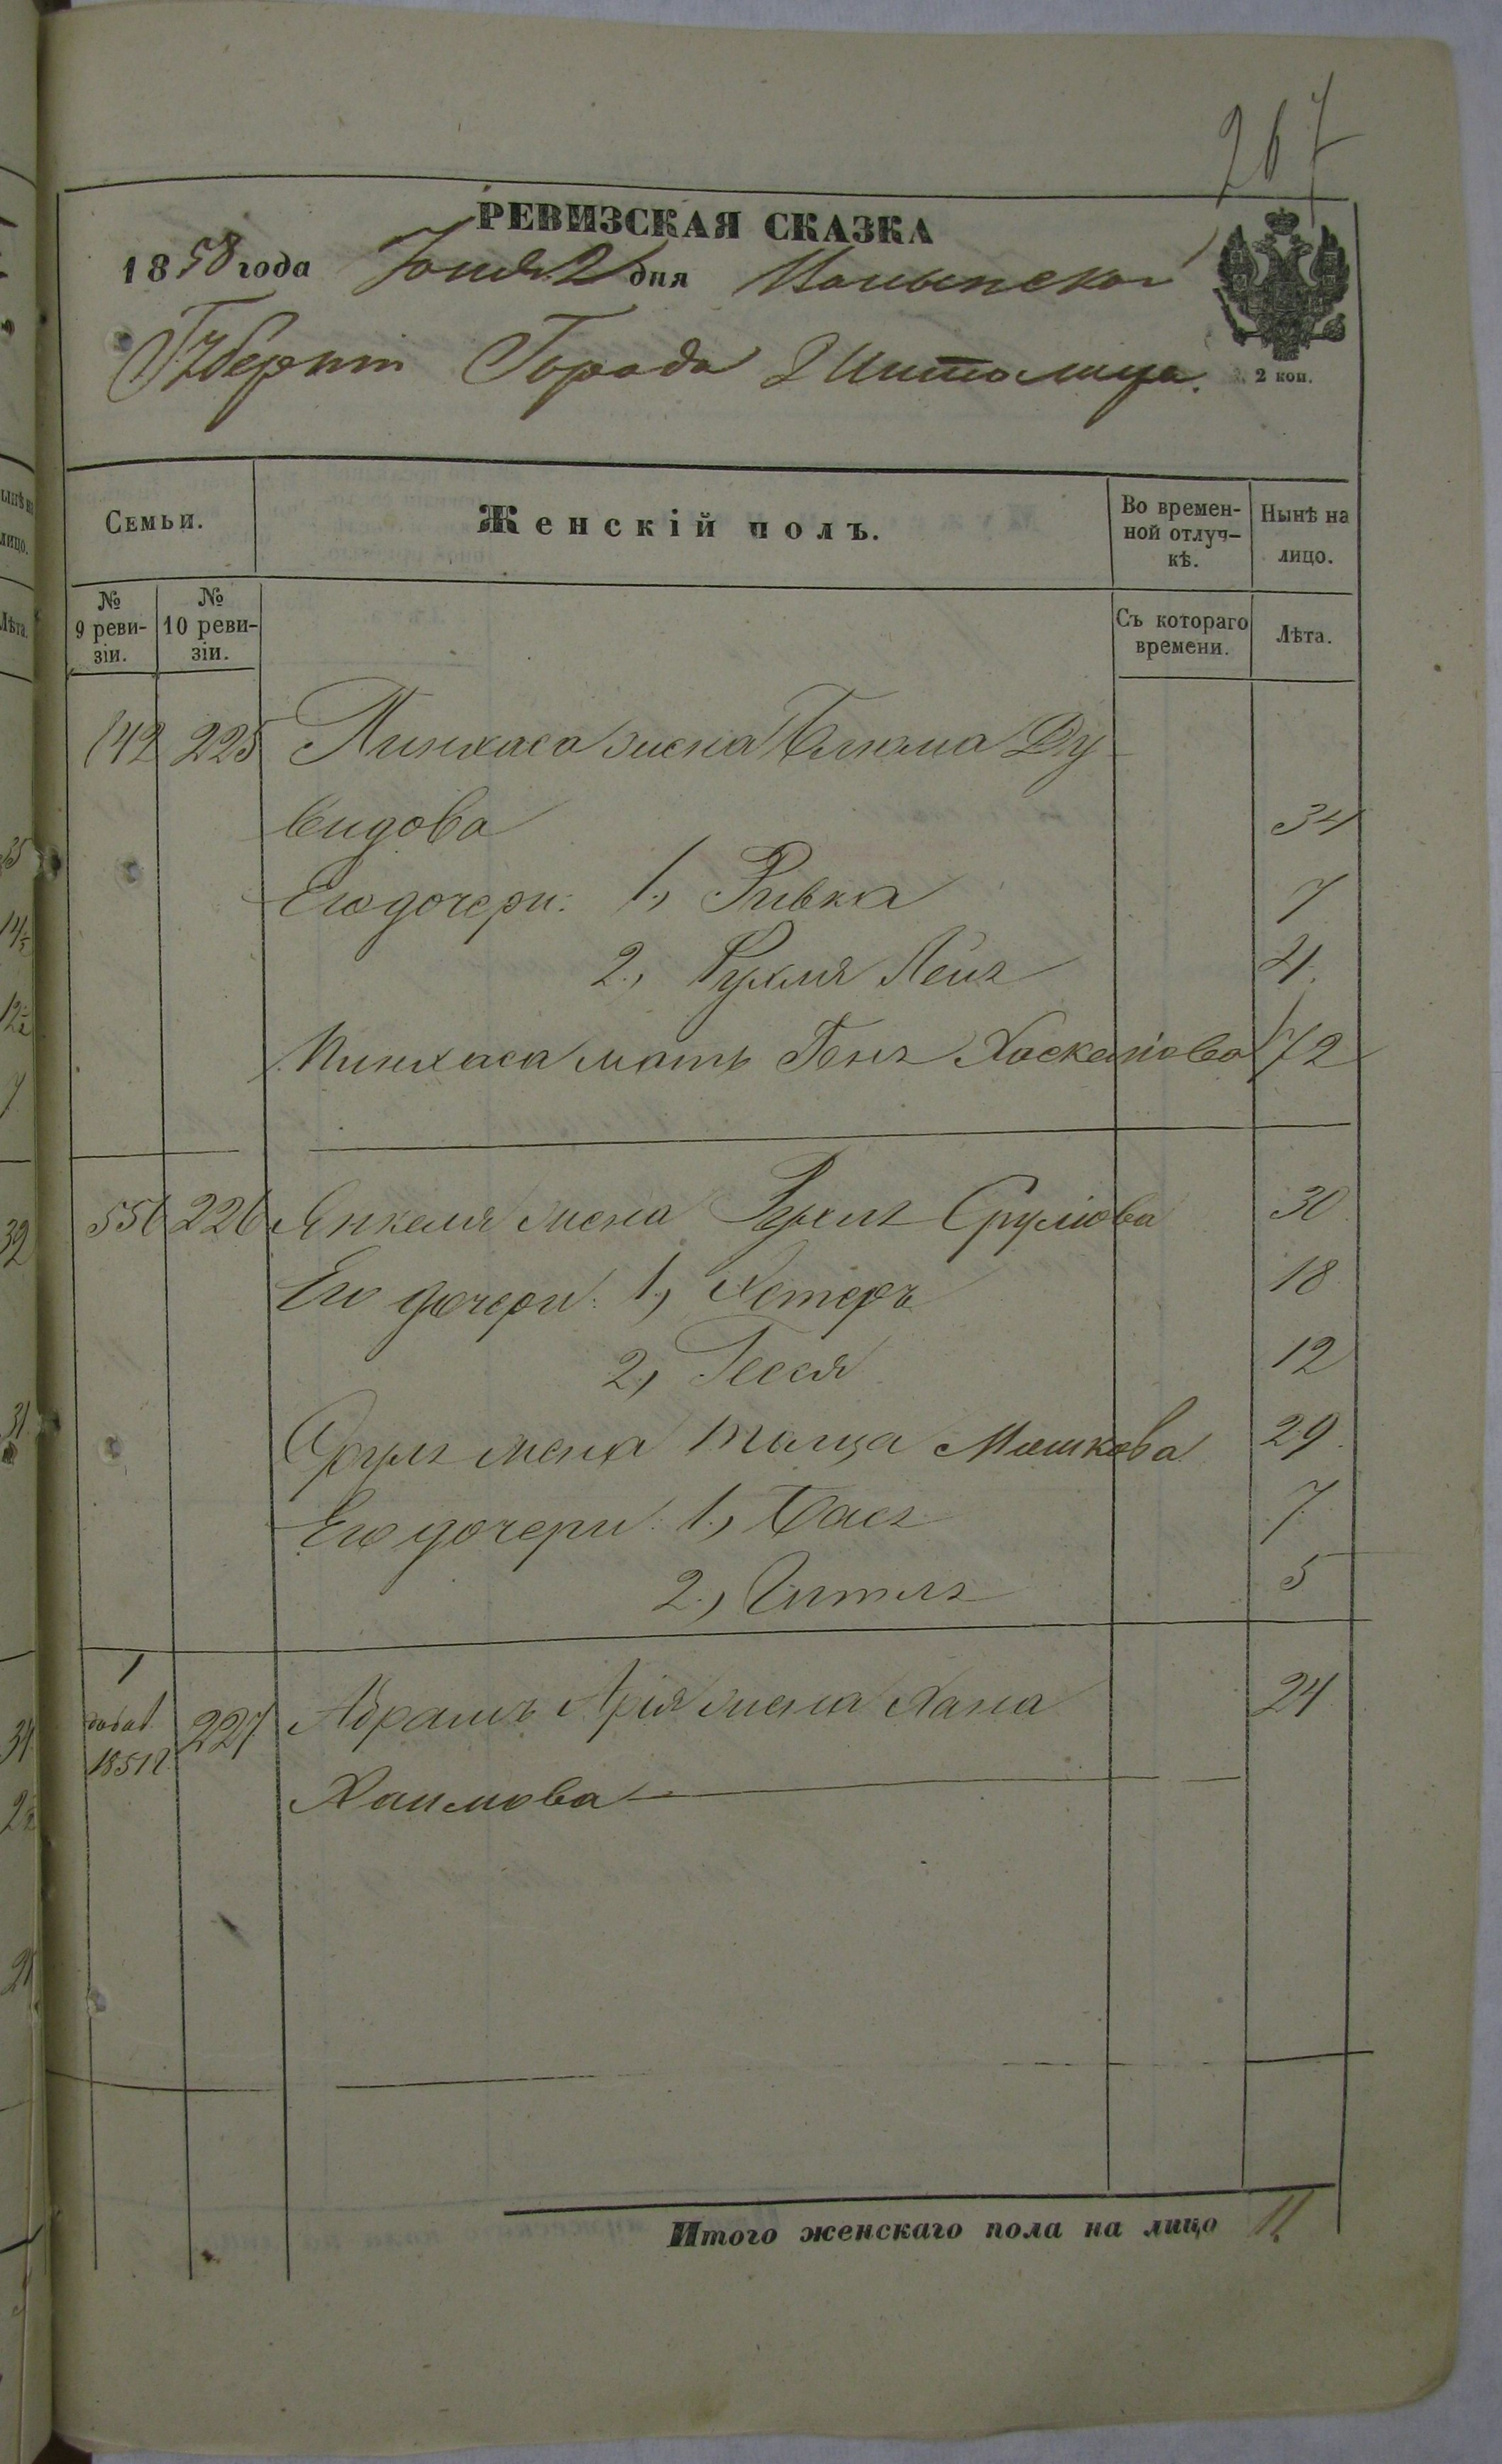 267
РЕВИЗСКАЯ СКАЗКА
1858 года Юня 2 дня Волынской
Губерніи Города Житомира.
2 коп.
Семьи. Женскій полъ. Во временной отлучкѣ. Нынѣ на лицо.
№ 9 ревизіи. № 10 ревизіи. Съ котораго времени. Лѣта.
142 225 Пинхаса жена Блюма Ду
видова 34
Его дочери: 1, Ривка 7
2, Рухля Лея 4
Пинхаса мать Геня 72
556 226 Янкеля жена Рухля Срулiова 30
Его дочери: 1, Хстеръ 18
2, Гесся 12
Сруля жена Мошкова 29
Его дочери: 1, Бася 7
2, Гитля 5
1
добав.
1851 г. 227 Абрамъ Арія жена Хана 24
Хаимова
Итого женскаго пола на лицо 11.